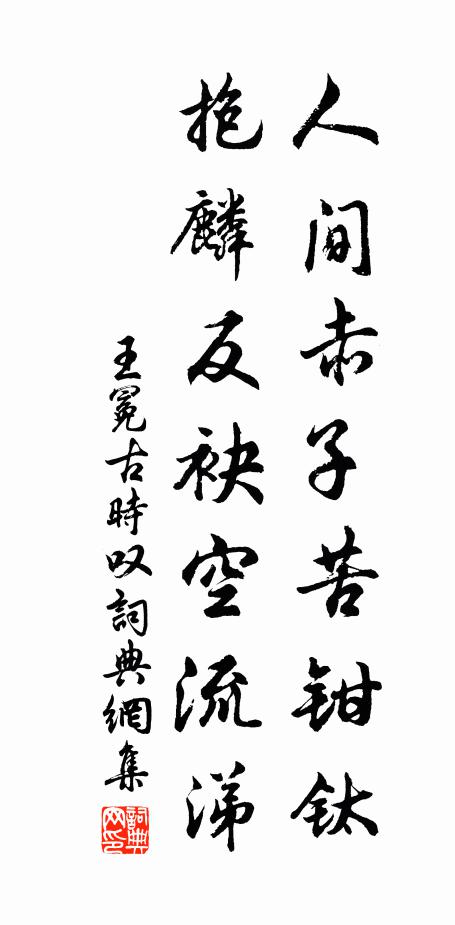 人间赤子苦钳钛
抱麟反袂空流涕
王冕古時叹詞典網集
詞典网印